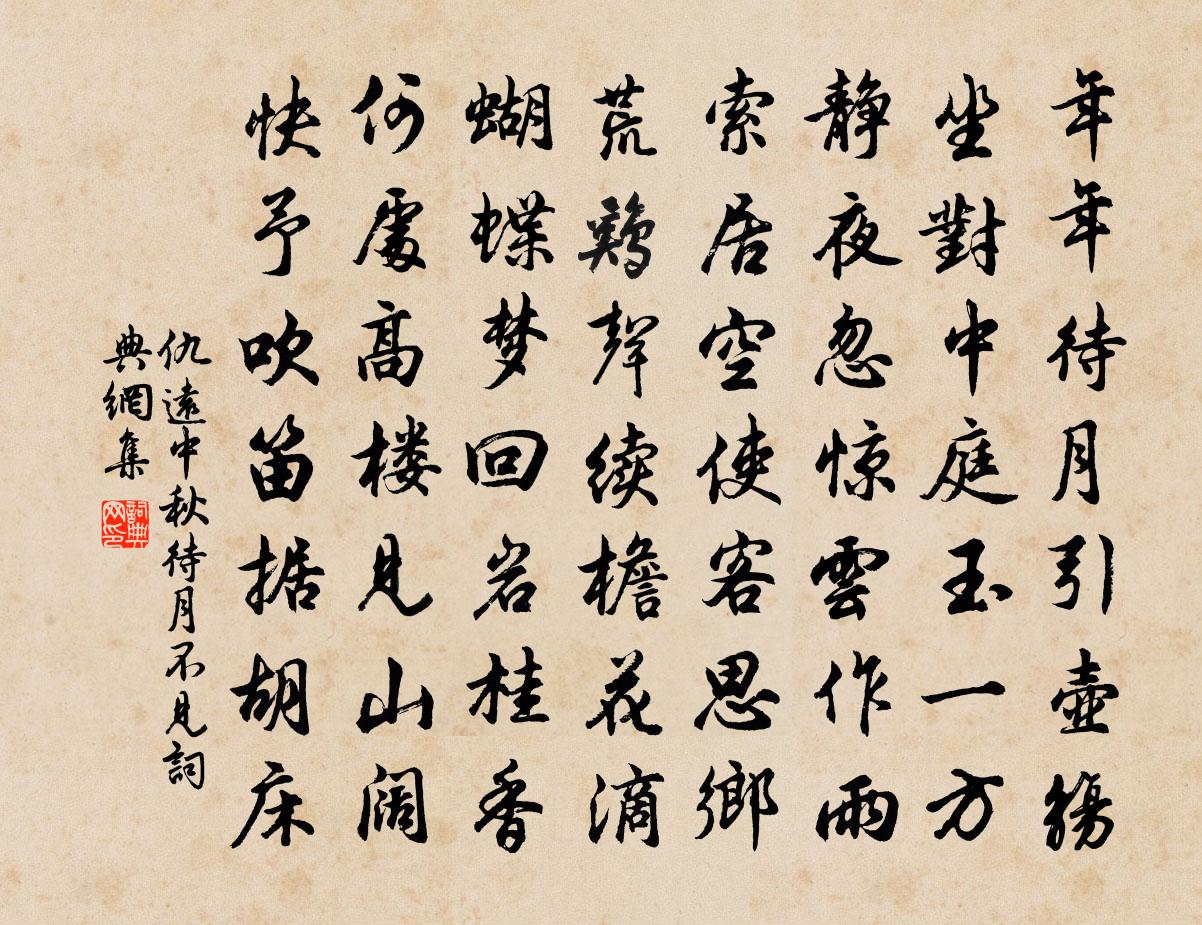 年年待月引壺觴
坐對中庭玉一方
静夜忽惊雲作雨
索居空使客思鄉
荒鶏聲续檐花滴
蝴蝶梦回岩桂香
何處高楼見山阔
快予吹笛据胡床
仇遠中秋待月不見詞
典網集
詞典
网印